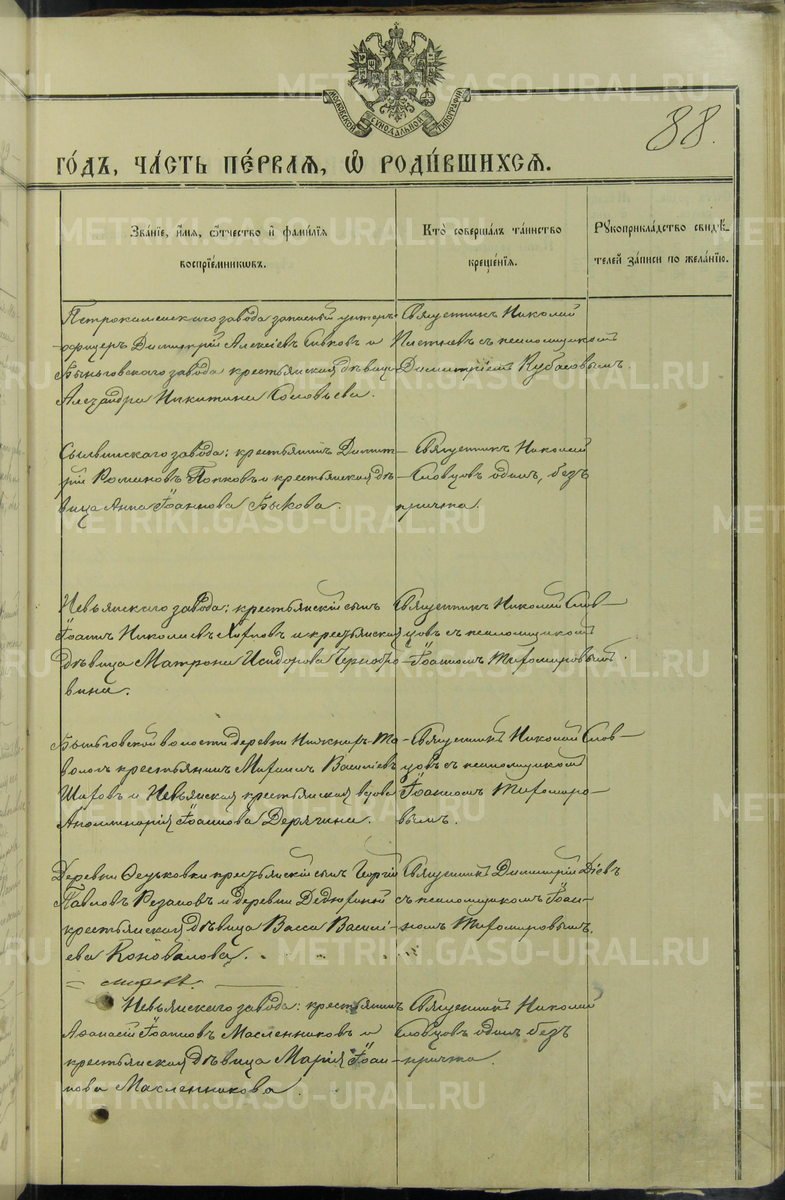 МОСКОВСКОЙ СѴНОДАЛЬНОЙ ТИПОГРАФІИ
88.
ГО́ДЪ, ЧА́СТЬ ПЕ́РВАѦ, Ѿ РОДИ́ВШИХСѦ.
Зва́нїе, и҆́мѧ, ѻ҆́тчество и҆ фами́лїѧ
воспрїе́мникѡвъ.
Кто̀ соверша́лъ та́инство
креще́нїѧ.
Рꙋкоприкла́дство свидѣ́-
телей за́писи по жела́нїю.
Петрокаменскаго завода запасный унтеръ-
офицеръ Димитрій Алексіевъ Сивковъ и
Быньговскаго завода крестьянская дѣвица
Алеѯандра Никитина Соловьева.
Священникъ Николай
съ псаломщикомъ
Димитріемъ Кубасовымъ.
Сылвинскаго завода: крестьянинъ Димит-
рій Романовъ Попковъ и крестьянская дѣ-
вица Анна Іоаннова Быкова.
Священникъ Николай
Словцовъ одинъ, безъ
причта.
Невьянскаго завода: крестьянскій сынъ
Іоаннъ Николаевъ и крестьянская
дѣвица Матрона Исидорова Чернобро-
вина.
Священникъ Николай Слов-
цовъ съ псаломщикомъ
Іоанномъ Тихомировымъ.
Быньговской волости деревни Нижнихъ-Та-
вологъ крестьянинъ Василіевъ
Шаровъ и Невьянская крестьянская вдова
Аполлинарія Іоаннова Дерягина.
Священникъ Николай Слов-
цовъ съ псаломщикомъ
Іоанномъ Тихомиро-
вымъ.
Деревни Ѳедьковки крестьянскій сынъ Георгій
Павловъ Резановъ и деревни Дедюхиной
крестьянская дѣвица Васса Василі-
ева Коновалова.
Священникъ Димитрій Діевъ
съ псаломщикомъ Іоан-
номъ Тихомировымъ.
Невьянскаго завода: крестьянинъ
Аѳанасій Іоанновъ Масленниковъ и
крестьянская дѣвица Марія Іоан-
нова Масленникова.
Священникъ Николай
Словцовъ одинъ безъ
причта.
METRIKI.GASO-URAL.RU